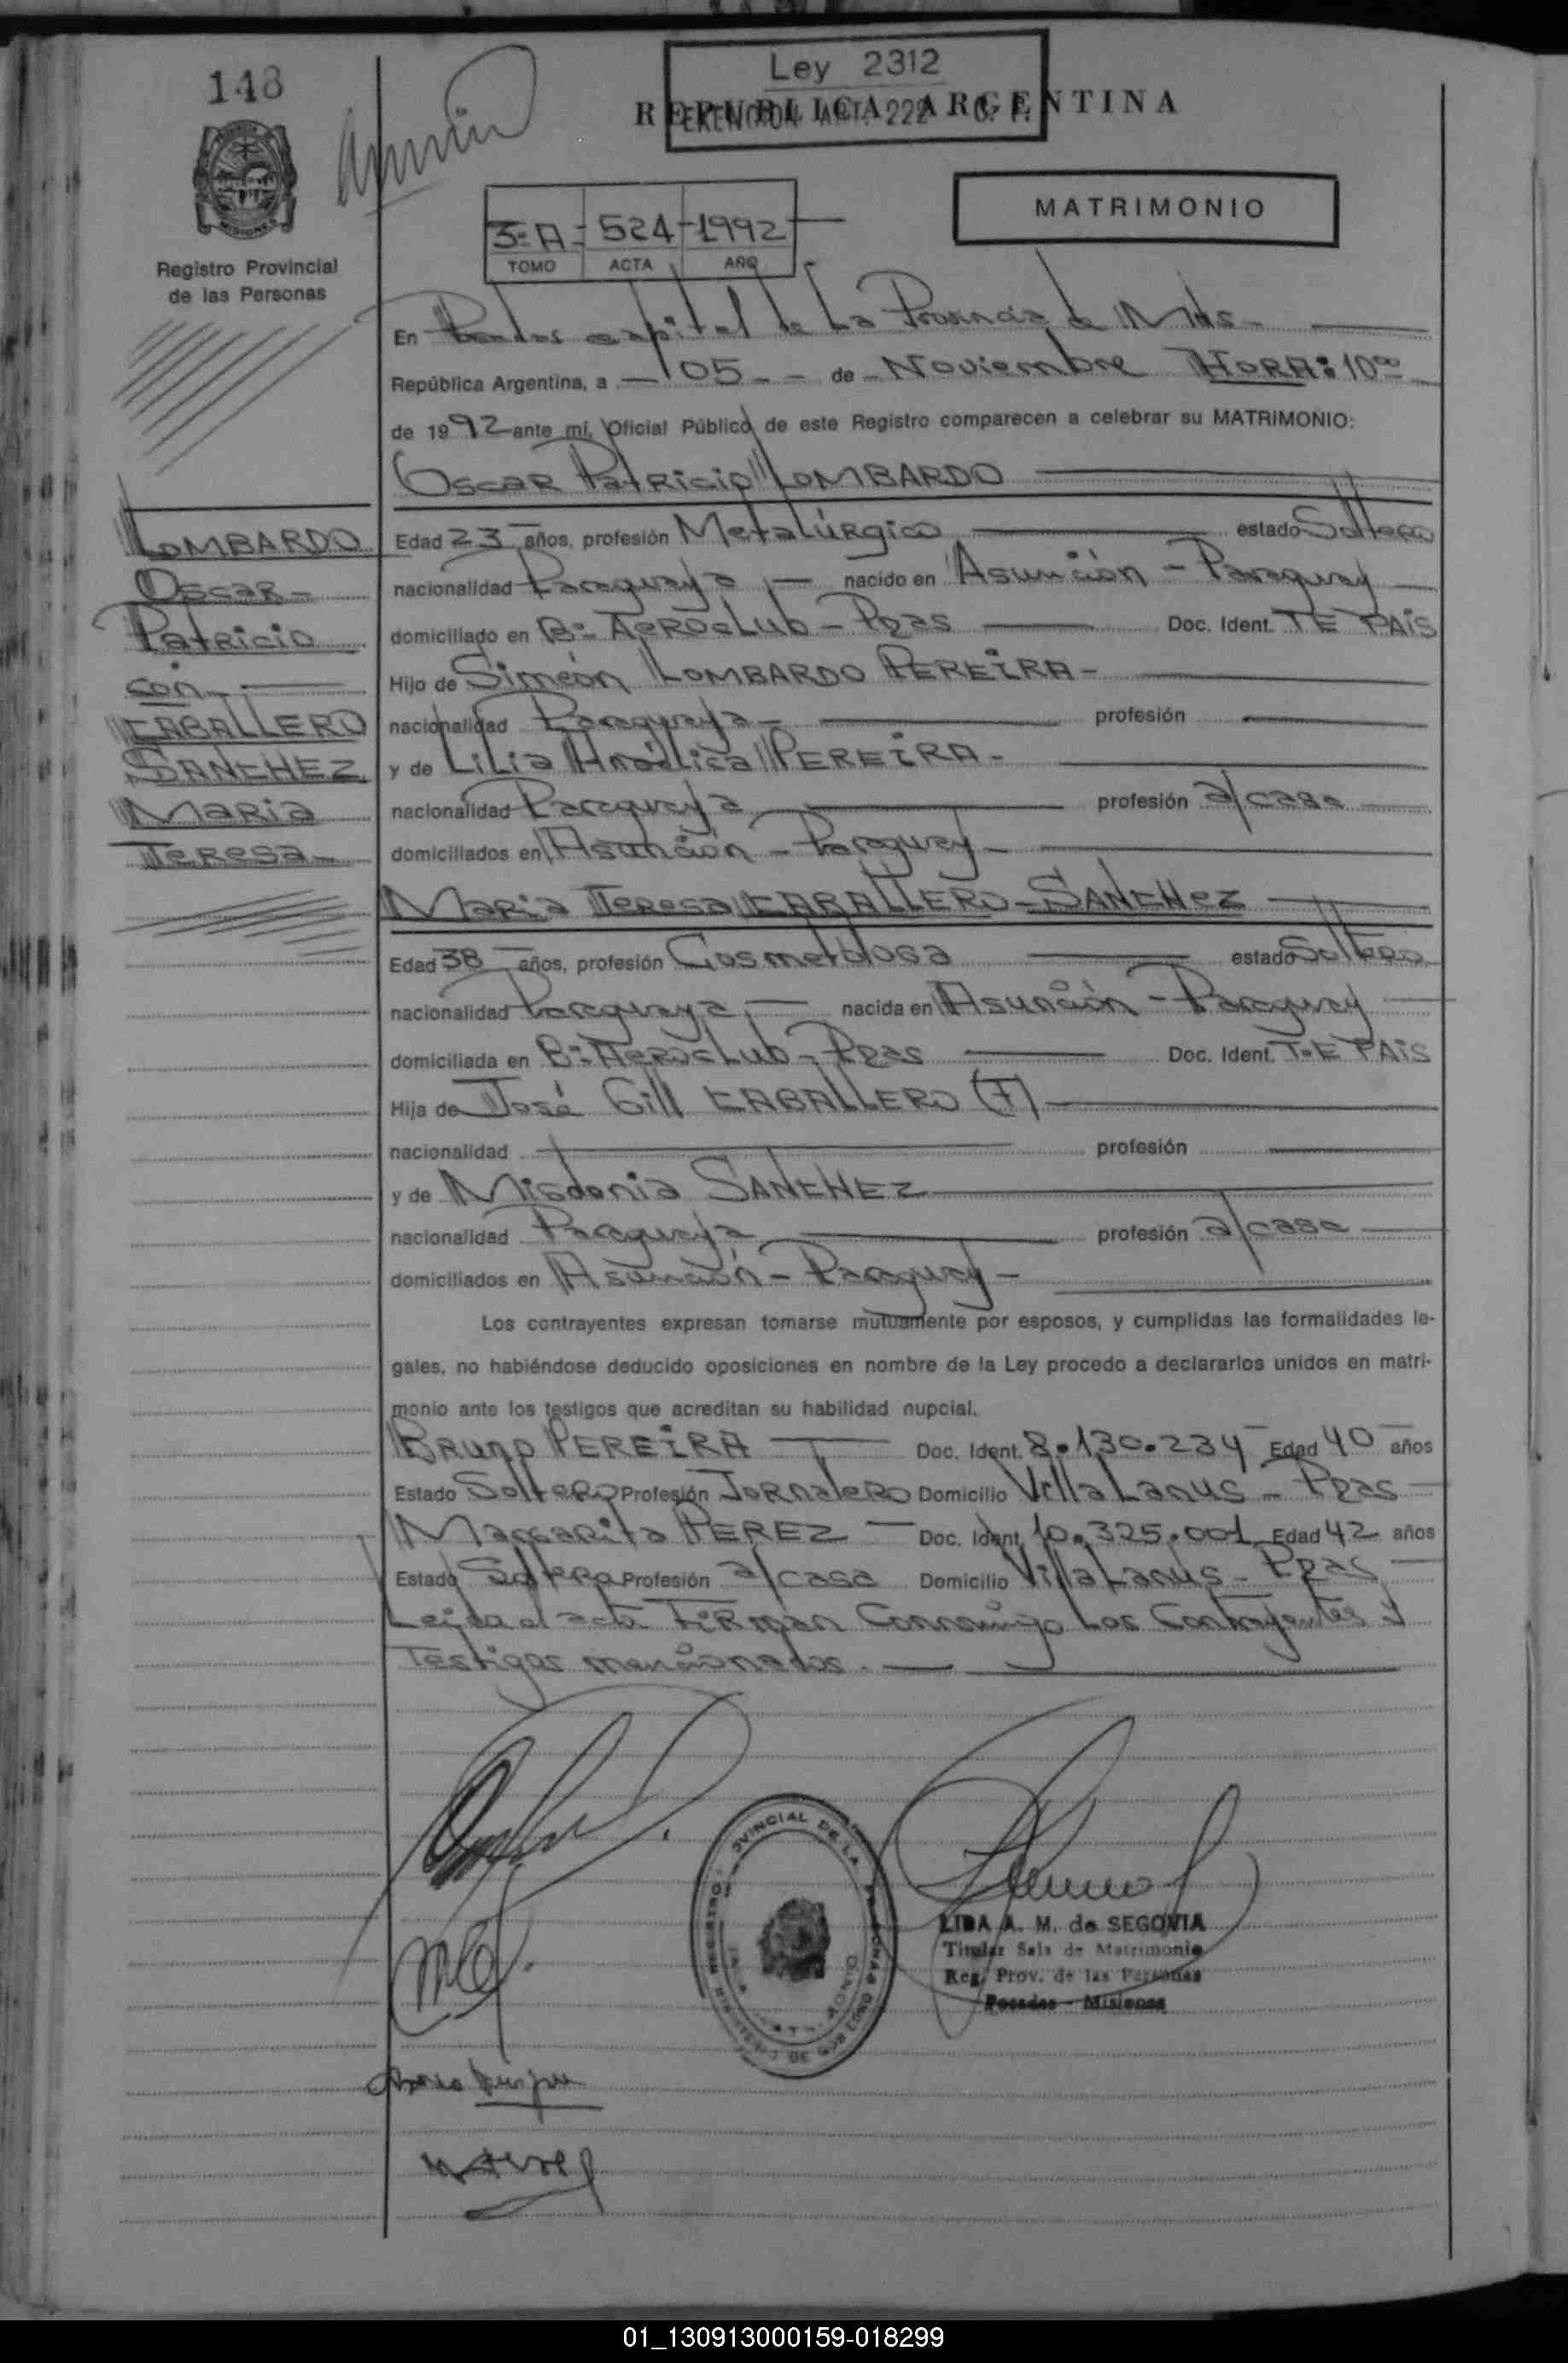 148
Ley 2312
REPUBLICA ARGENTINA
EXENCION ART. 222 C. F.
MISIONES
Registro Provincial
de las Personas
3º A - 524 - 1992
TOMO ACTA AÑO
MATRIMONIO
En Posadas capital de La Provincia de Mnes -
República Argentina, a 05 - - de Noviembre HORA: 10°°
de 1992 ante mí, Oficial Público de este Registro comparecen a celebrar su MATRIMONIO:
Oscar Patricio LOMBARDO
LOMBARDO
Oscar -
Patricio
con
CABALLERO
SANCHEZ
Maria
Teresa -
Edad 23 años, profesión Metalúrgico estado Soltero
nacionalidad Paraguaya nacido en Asunción - Paraguay
domiciliado en Bº Aeroclub - Pdas Doc. Ident. TE PAIS
Hijo de Simeón LOMBARDO PEREIRA -
nacionalidad Paraguaya - profesión
y de Lilia PEREIRA -
nacionalidad Paraguaya profesión a/casa
domiciliados en Asunción - Paraguay -
Maria Teresa CABALLERO - SANCHEZ
Edad 38 años, profesión estado Soltera
nacionalidad Paraguaya nacida en Asunción - Paraguay
domiciliada en Bº Aeroclub - Pdas Doc. Ident. T.E PAIS
Hija de José Gill CABALLERO (F)
nacionalidad profesión
y de Misdonia SANCHEZ
nacionalidad Paraguaya profesión a/casa
domiciliados en Asunción - Paraguay -
Los contrayentes expresan tomarse mutuamente por esposos, y cumplidas las formalidades le-
gales, no habiéndose deducido oposiciones en nombre de la Ley procedo a declararlos unidos en matri-
monio ante los testigos que acreditan su habilidad nupcial.
Bruno PEREIRA Doc. Ident. 8.130.234 Edad 40 años
Estado Soltero Profesión Jornalero Domicilio Villa Lanus - Pdas
Margarita PEREZ Doc. Ident. 10.325.001 Edad 42 años
Estado Soltera Profesión a/casa Domicilio Villa Lanus - Pdas
Leida el acta Firman Conmigo Los Contrayentes y
Testigos mencionados.
LIDA A. M. de SEGOVIA
Titular Sala de Matrimonio
Reg. Prov. de las Personas
Posadas - Misiones
01_130913000159-018299